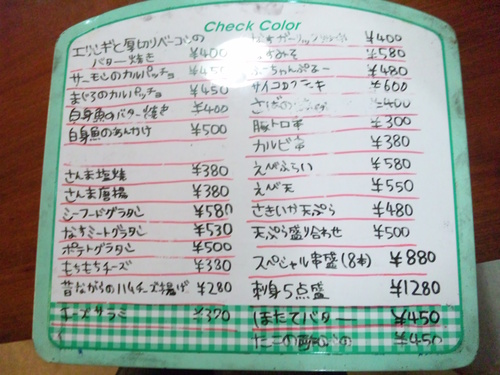 Check Color
エリンギと厚切りベーコンの
バター焼き ¥400
サーモンのカルパッチョ ¥450
まぐろのカルパッチョ ¥450
白身魚のバター焼き ¥400
白身魚のあんかけ ¥500
さんま塩焼 ¥380
さんま唐揚 ¥380
シーフードグラタン ¥580
なすミートグラタン ¥530
ポテトグラタン ¥500
もちもちチーズ ¥330
昔ながらのハムチーズ揚げ ¥280
チーズサラミ ¥370
¥400
¥580
ちゃんぷるー ¥480
サイコロステーキ ¥600
¥400
豚トロ串 ¥300
カルビ串 ¥380
えびふらい ¥580
えび天 ¥550
さきいか天ぷら ¥480
天ぷら盛り合わせ ¥500
スペシャル串盛(8本) ¥880
刺身5点盛 ¥1280
ほたてバター ¥450
たこの ¥450